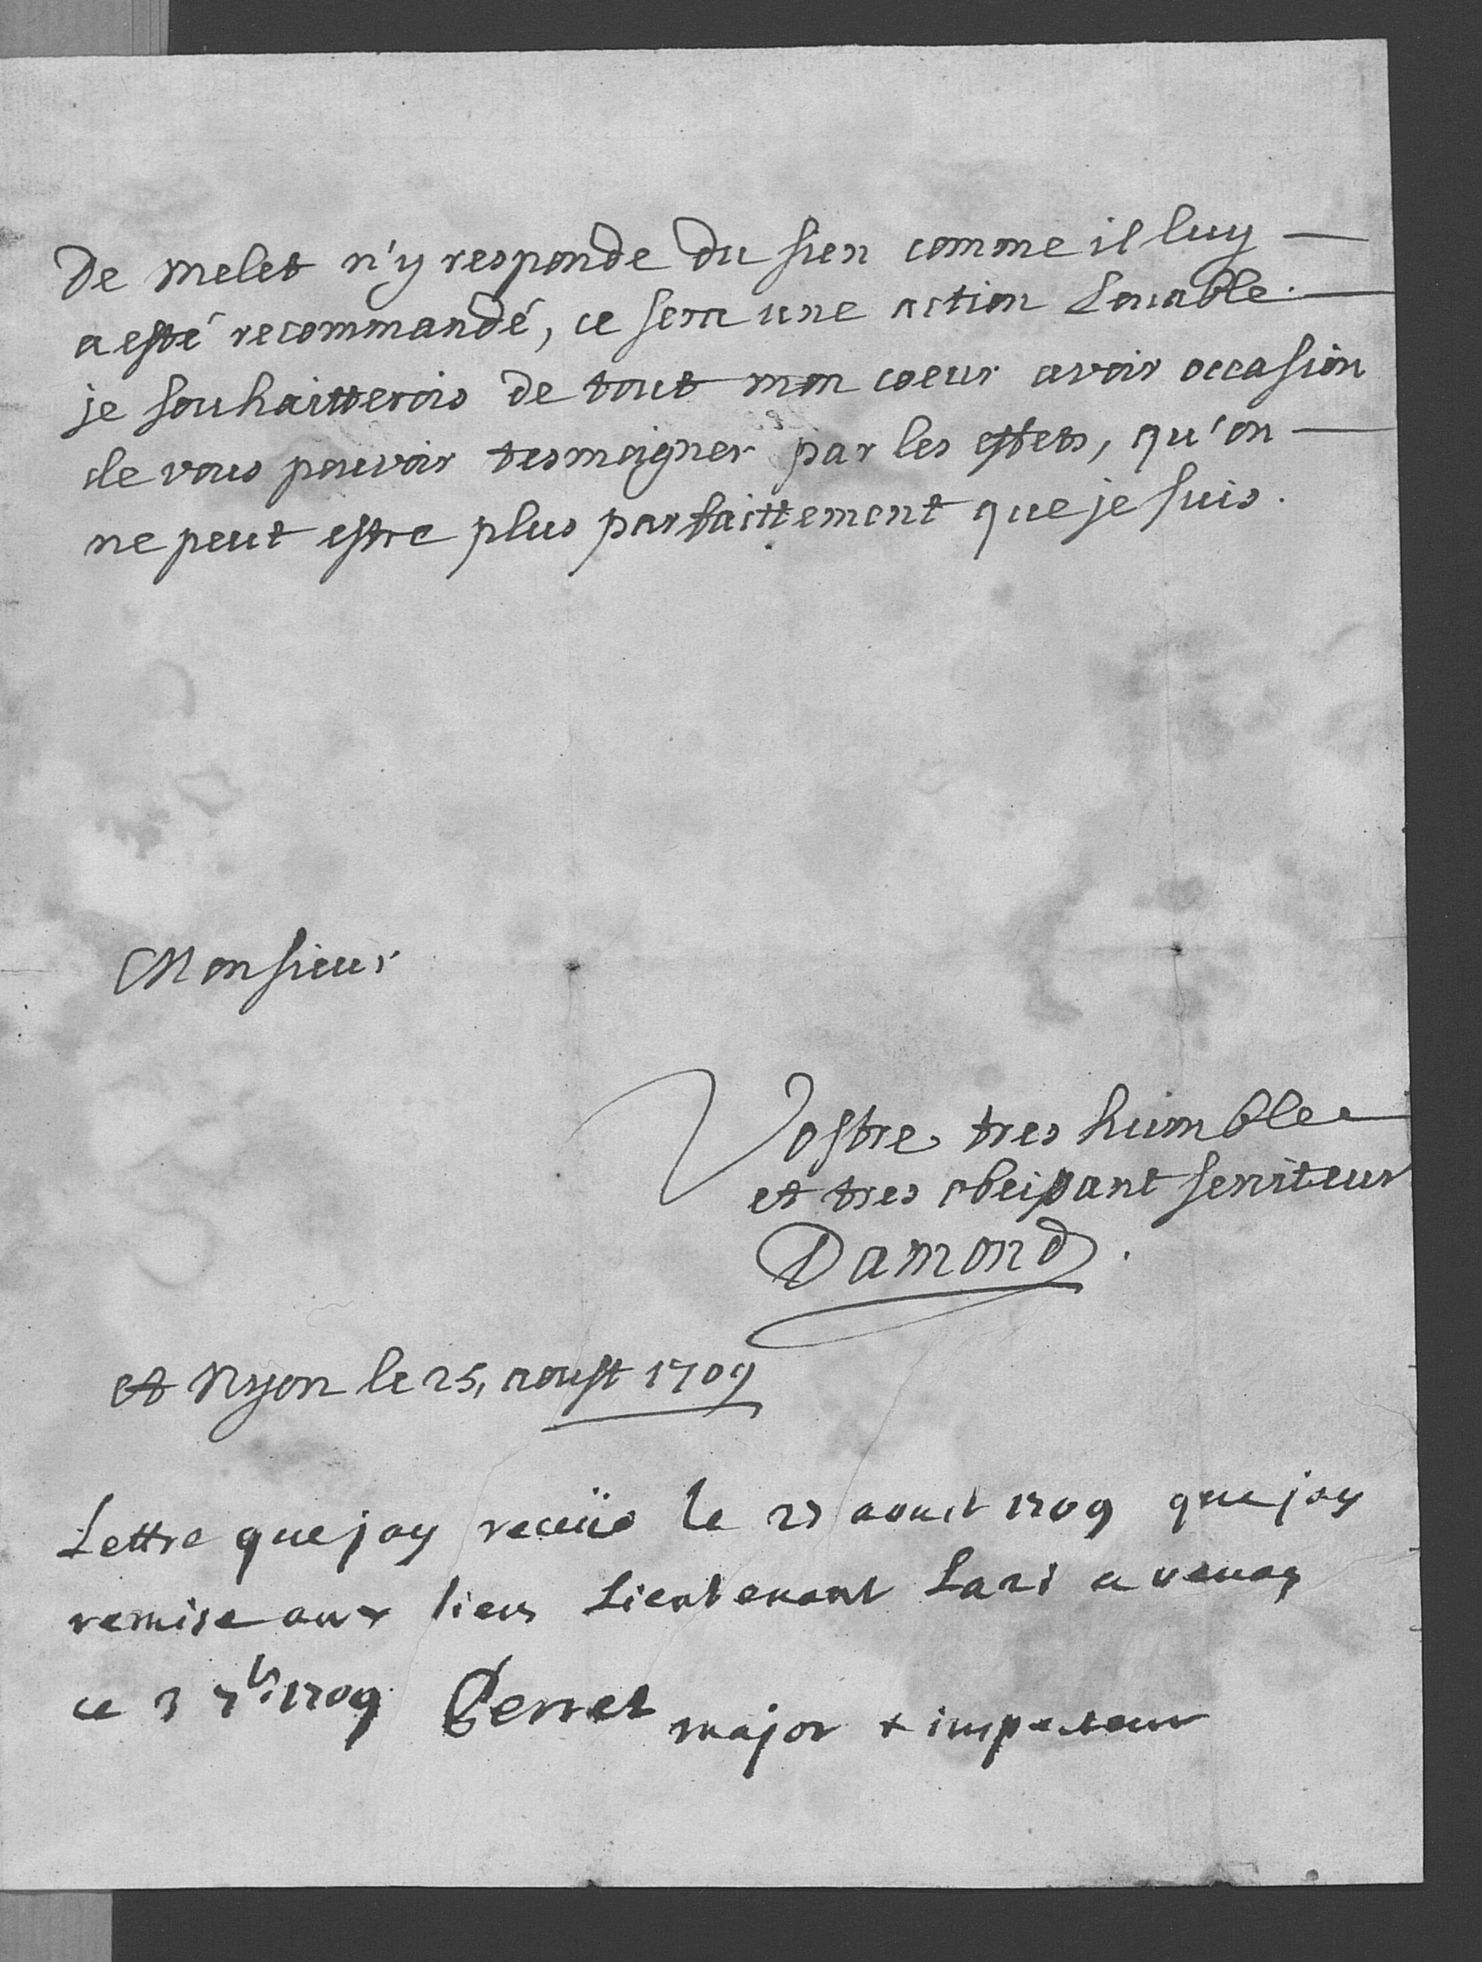 De Melet n'y responde du sien comme il luy —
a esté recommandé, ce sera une action Louable. —
je souhaitterois de tout mon coeur avoir occasion
de vous pouvoir tesmoigner par les effets, qu'on —
ne peut estre plus parfaittement que je suis.
Monsieur
Vostre tres humble
et tres obeissant serviteur
Damond.
A Nyon le 25, aoust 1709
Lettre que jay receüe le 27 aoust 1709 que jay
remise aux sieur Lieutenant a
ce 3 7b. 1709 Perret major & inspecteur